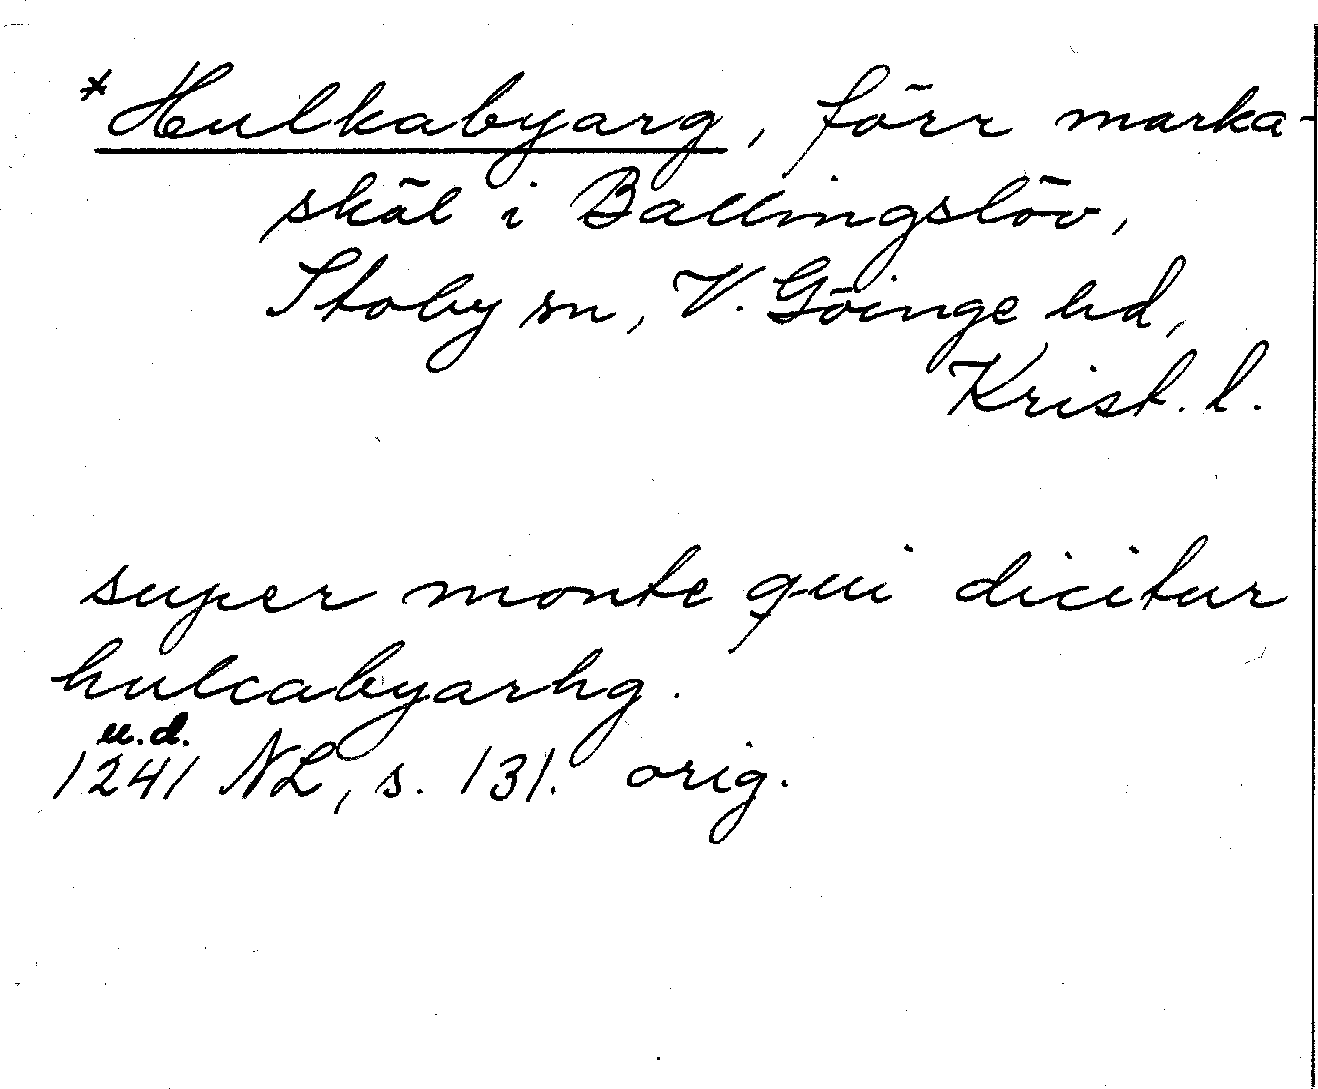 *Hulkabyarg, förr marka-
skäl i Ballingslöv,
Stoby sn, V. Göinge hd,
Krist. l.
super monte qui dicitur
hulcabyarhg.
u.d.
1241 NL, s. 131. orig.